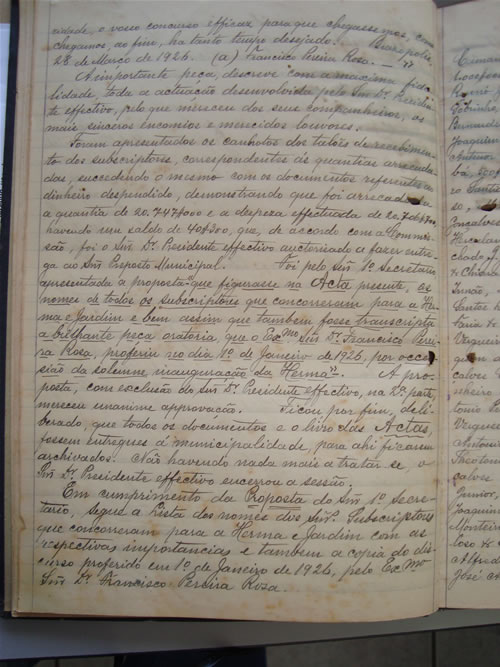 vidade, o vosso concurso efficaz para que chegassemos, como
chegamos, ao fim, ha tanto tempo desejado.
28 de Março de 1926. (a) Francisco Pereira Rosa. —
A importante peça, descreve com a maxima fide-
lidade, toda a actuação desenvolvida pelo Snr. Dr. Presiden-
te effectivo, pelo que mereceu dos seus companheiros, os
mais sinceros encomios e merecidos louvores.
Foram apresentados os canhotos dos talões de recebimen-
to dos subscriptores, correspondentes ás quantias arrecada-
das, succedendo o mesmo com os documentos referentes ao
dinheiro despendido, demonstrando que foi arrecadada
a quantia de 20.747$000 e a despeza effectuada de
havendo um saldo de que, de accordo com a Commis-
são, foi o Snr. Dr. Presidente effectivo auctorisado a fazer entre-
ga ao Snr. Preposto Municipal. Foi pelo Snr. 1º Secretario
apresentada a proposta que figurasse na Acta presente, os
nomes de todos os subscriptores que concorreram para a Her-
ma e Jardim e bem assim que tambem fosse transcripta
a brilhante peça oratoria que o Exmo. Snr. Dr. Francisco Perei-
ra Rosa, proferiu no dia 1º de Janeiro de 1926, por occa-
sião da solemne inauguração da Herma. A pro-
posta, com exclusão do Snr. Dr. Presidente effectivo, na 2ª parte,
mereceu unanime approvação. Ficou por fim, deli-
berado, que todos os documentos e o livro das Actas,
fossem entregues á municipalidade, para ahi ficarem
archivados. Não havendo nada mais a tratar se, o
Snr. Dr. Presidente effectivo encerrou a sessão.
Em cumprimento da Proposta do Snr. 1º Secre-
tario, segue a Lista dos nomes dos Snrs. Subscriptores
que concorreram para a Herma e Jardim com as
respectivas importancias e tambem a copia do dis-
curso proferido em 1º de Janeiro de 1926, pelo Exmo.
Snr. Dr. Francisco Pereira Rosa.
Joaquim
Gonçalves
Santos
Junior,
Joaquim
Monteiro
Alfredo
José